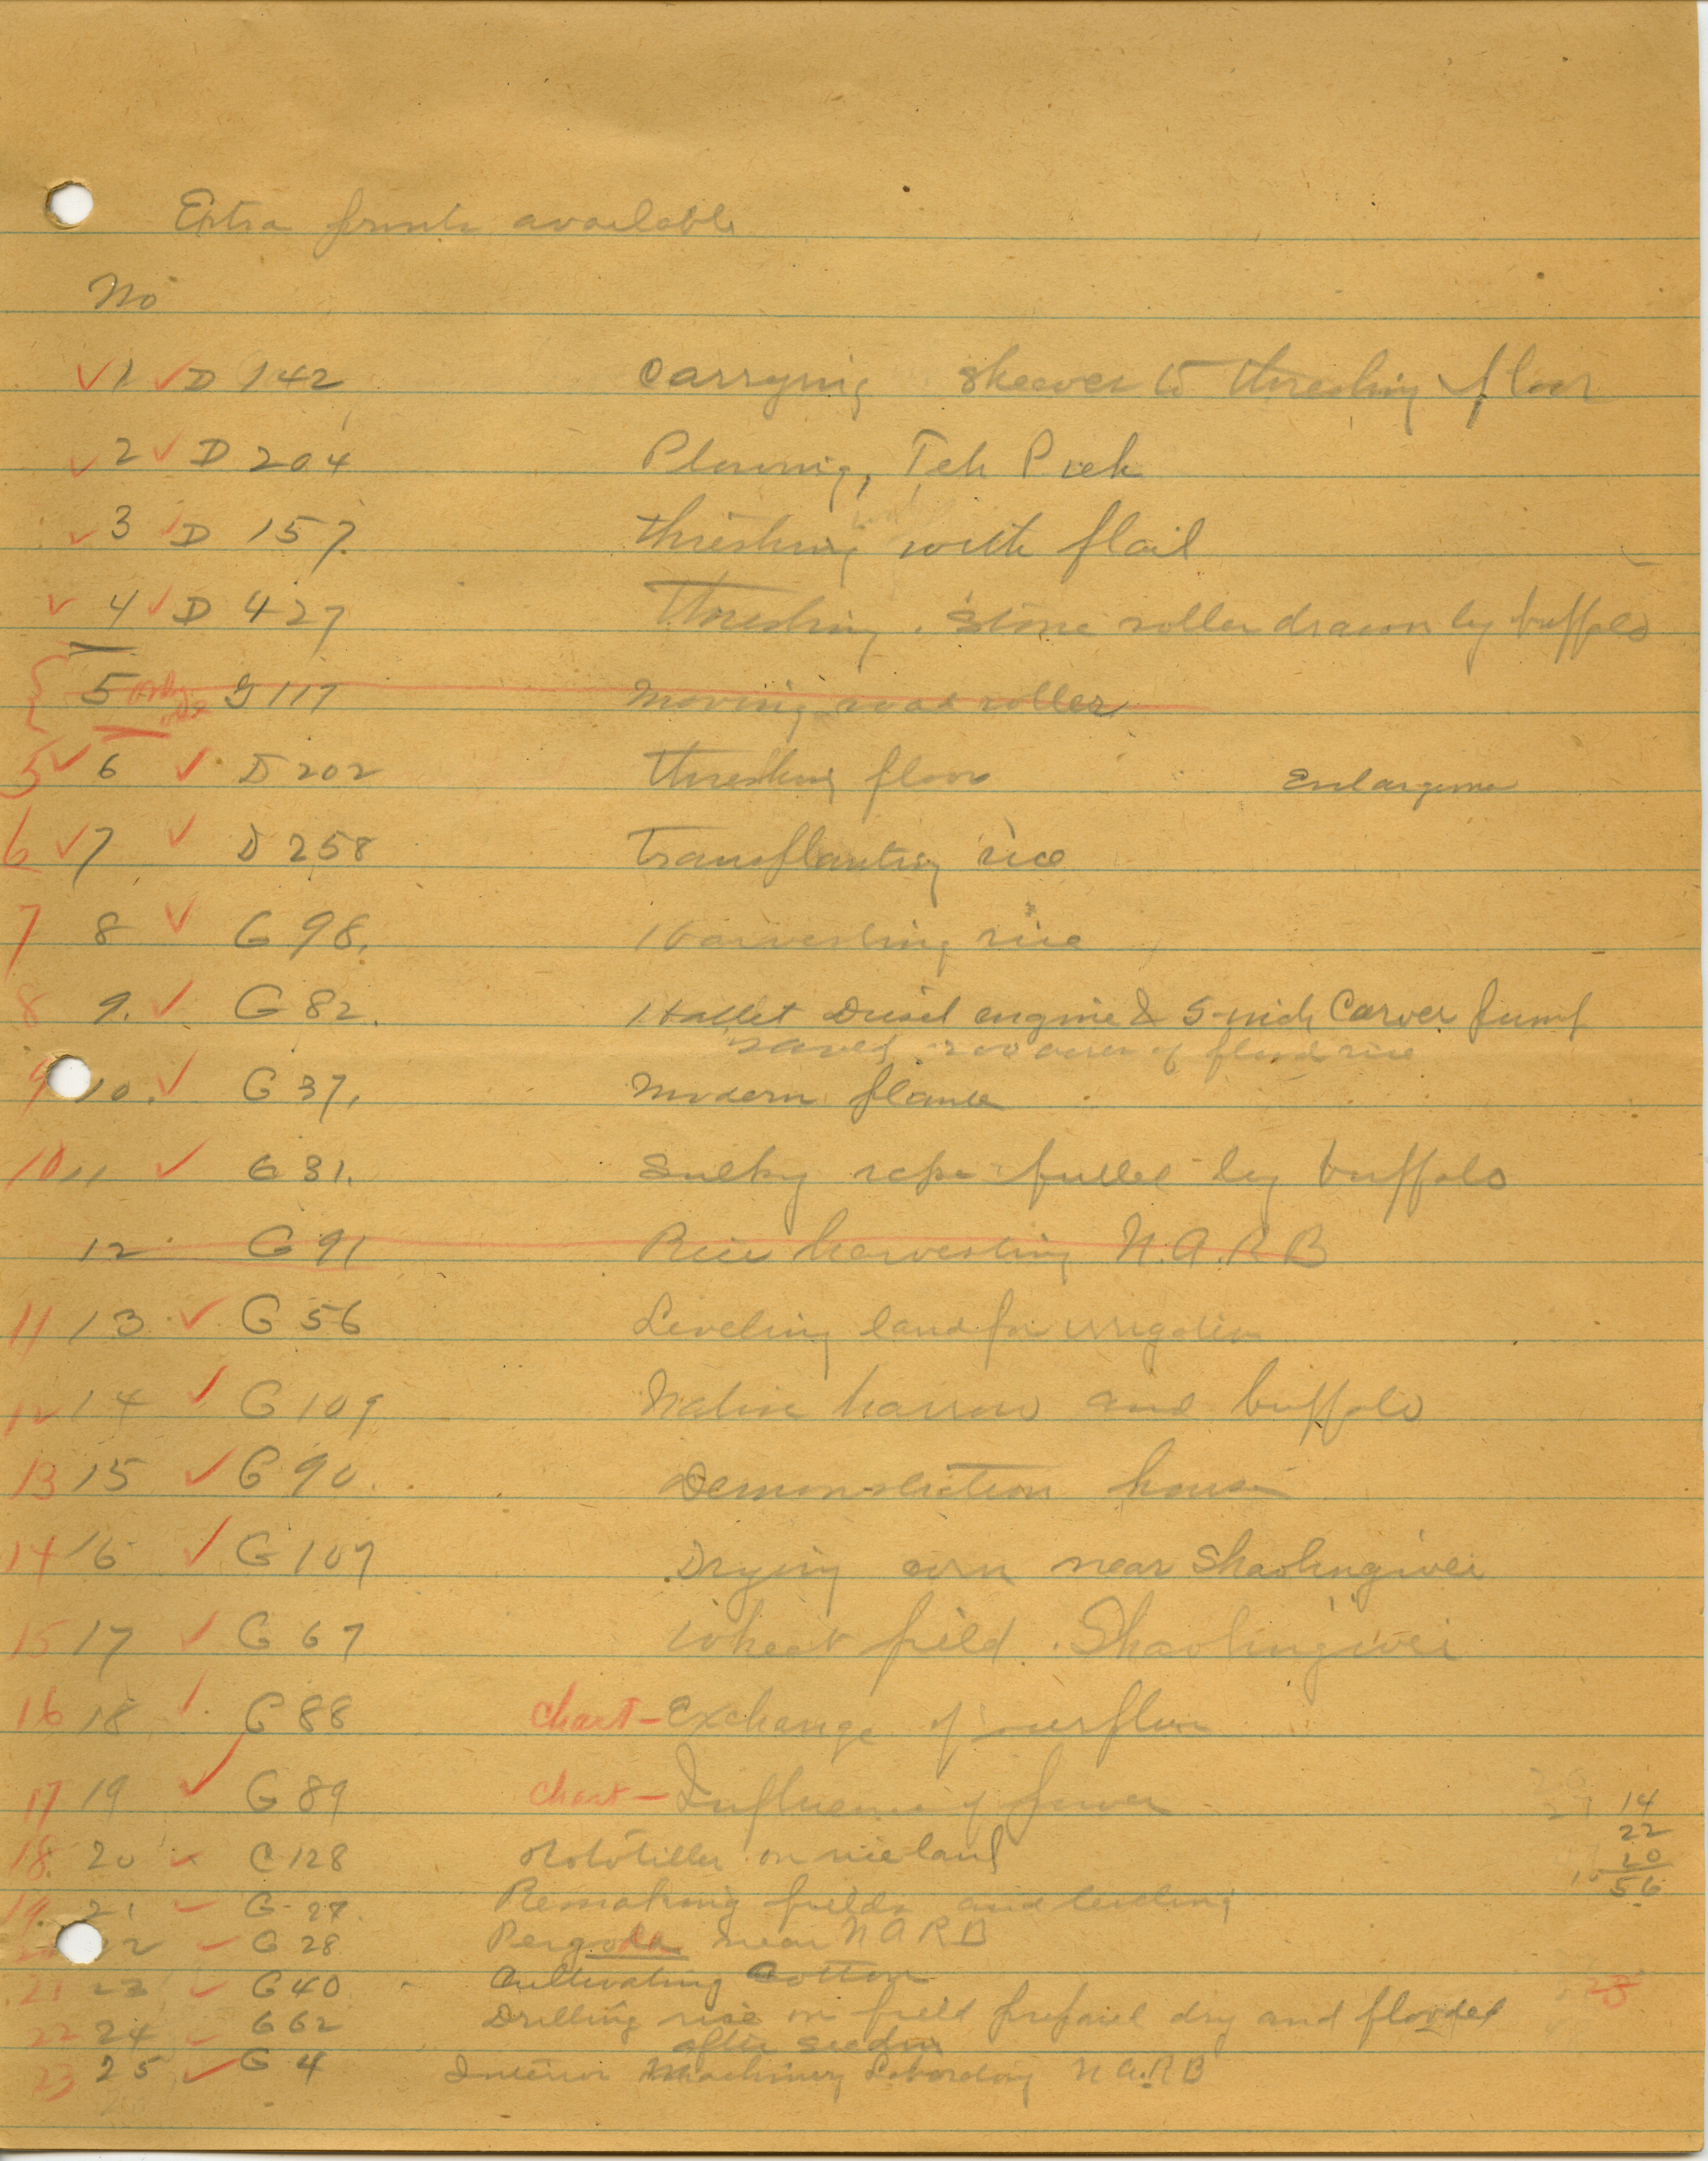 Extra prints available
No
✓ 1 ✓ D 142 Carrying sheaves to threshing floor
✓ 2 ✓ D 204 Plowing, Teh Pieh
✓ 3 ✓ D 157 Threshing with flail
✓ 4 ✓ D 427 Threshing. Stone roller drawn by buffalo
5 only one G 117 Moving road roller
5 ✓ 6 ✓ D 202 Threshing floor Enlargement
6 ✓ 7 ✓ D 258 Transplanting rice
7 8 ✓ G 98. Harvesting rice
8 9. ✓ G 82. Hallet Diesel engine & 5-inch Carver pump
saved 200 acres of flood rice
9 10. ✓ G 37. Modern planter
10 11 ✓ G 31. Sulky rake pulled by buffalo
12 G 91 Rice harvesting N.A.R.B
11 13 ✓ G 56 Leveling land for irrigation
12 14 ✓ G 109 Native harrow and buffalo
13 15 ✓ G 90. Demonstration house
14 16 ✓ G 107 Drying corn near Shaolingwei
15 17 ✓ G 67 Wheat field. Shaolingwei
16 18 ✓ G 88 Chart - Exchange of
17 19 ✓ G 89 Chart - Influence of power
14
22
20
56
18. 20 ✓ C 128 Rototiller on rice land
19. 21 ✓ G-27. Remaking fields and leveling
22 ✓ G 28 Pergoda near NARB
21 23 ✓ G 40 Cultivating Cotton
23
22 24 ✓ G 62 Drilling rice on field prepared dry and flooded
after seeding
23 25 ✓ G 4 Interior Machinery Laboratory N A.R B